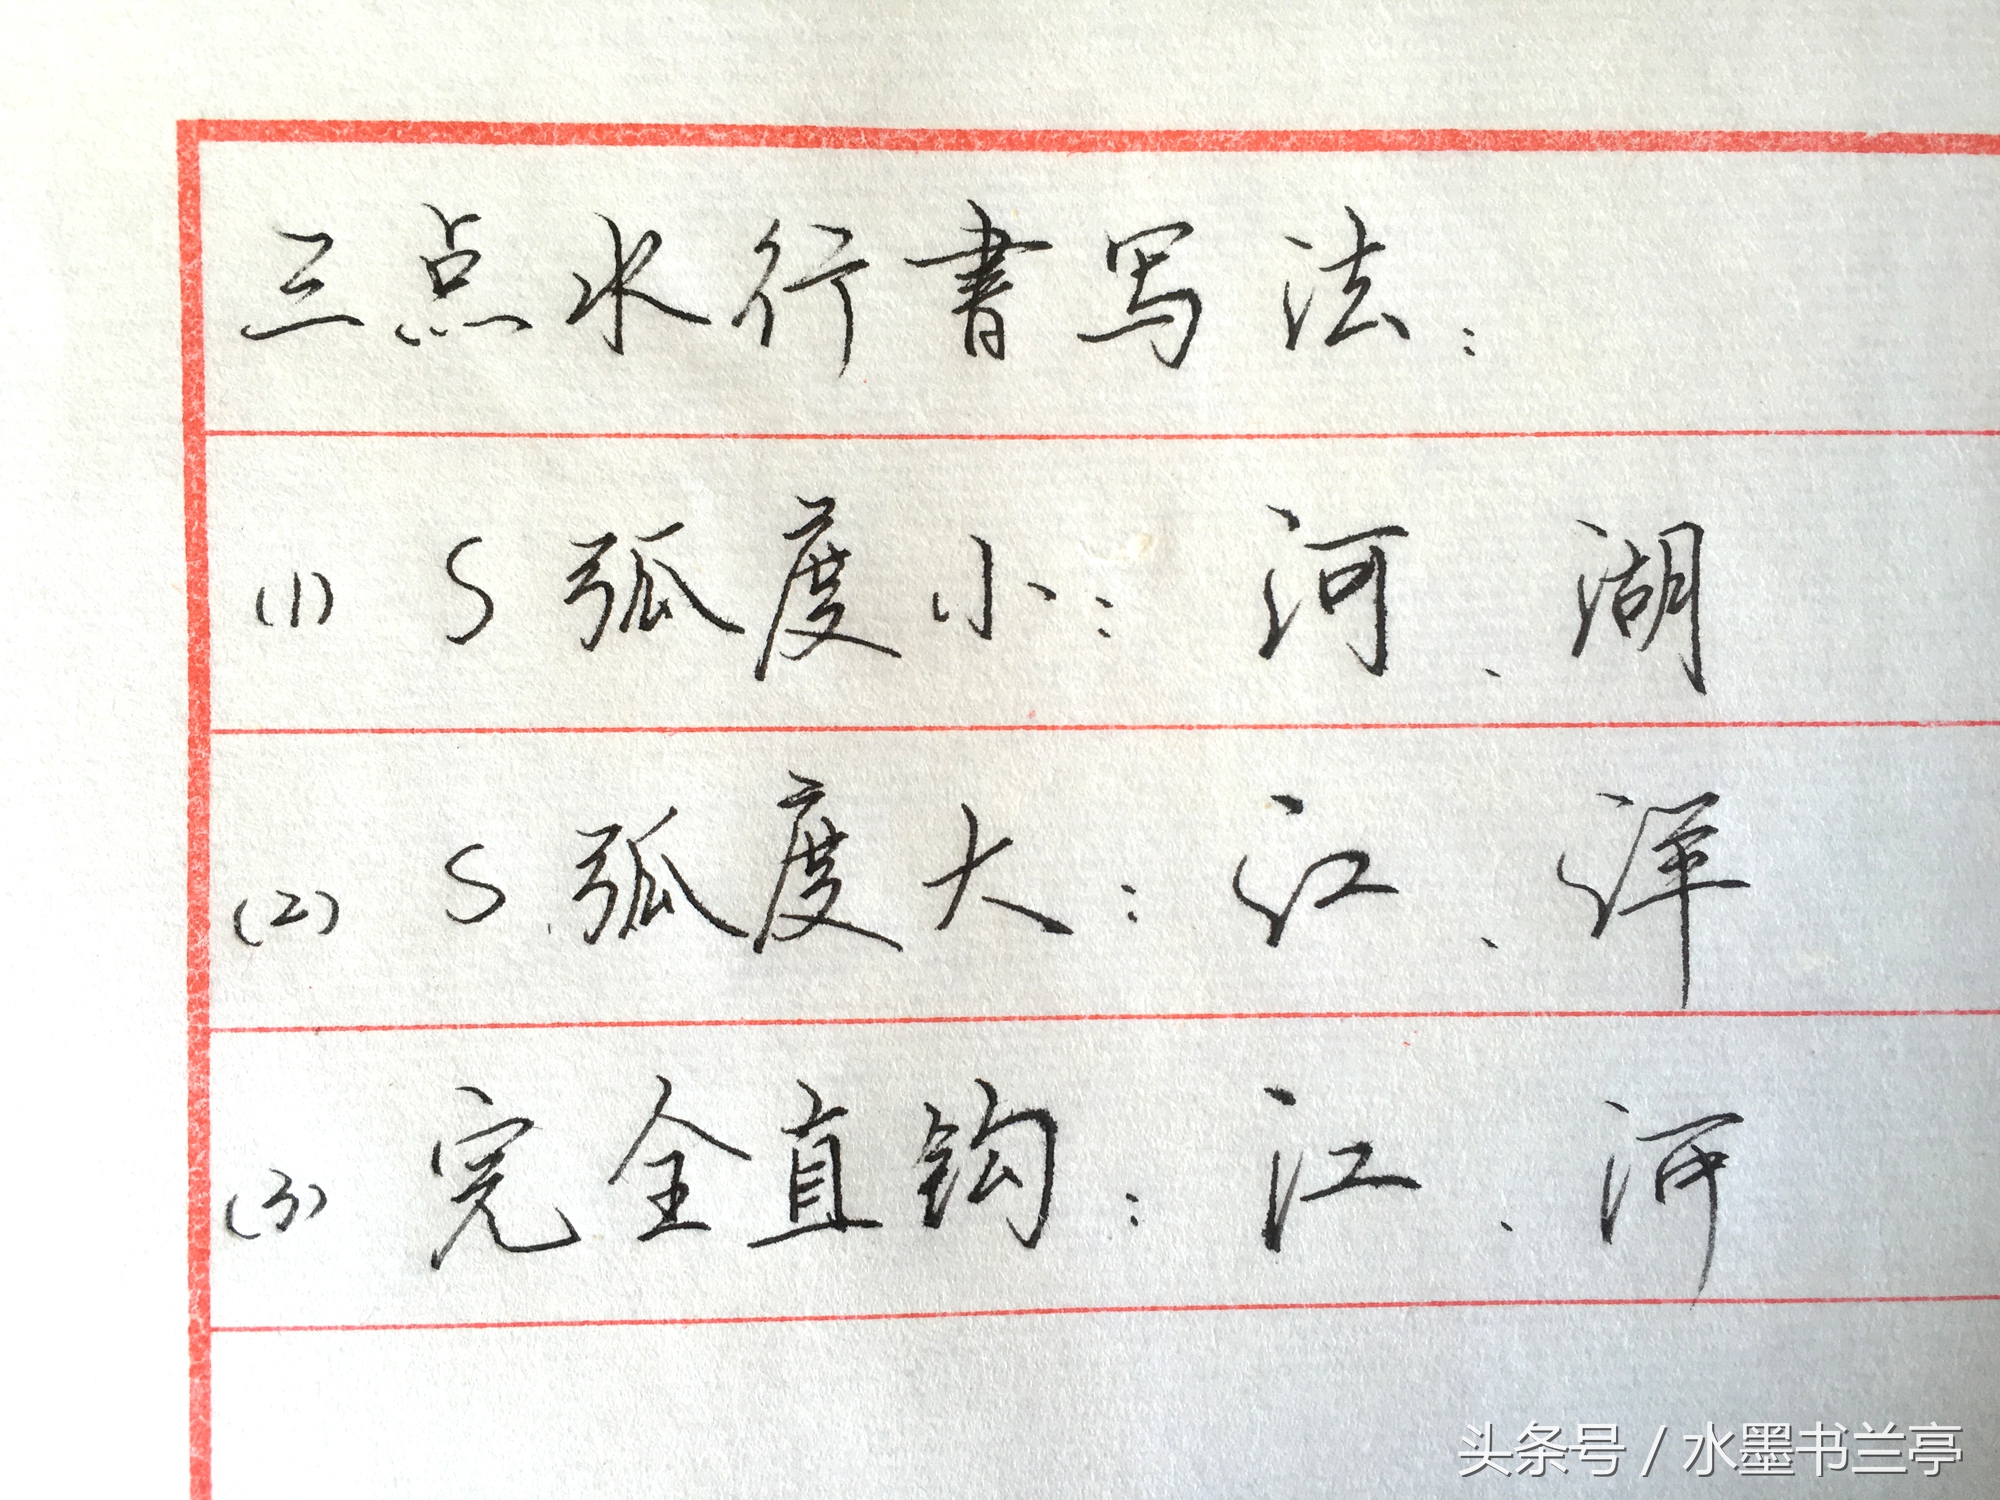 三点水行書写法：
(1) S弧度小：河、湖
(2) S弧度大：江、洋
(3) 完全直钩：江、河
头条号 / 水墨书兰亭